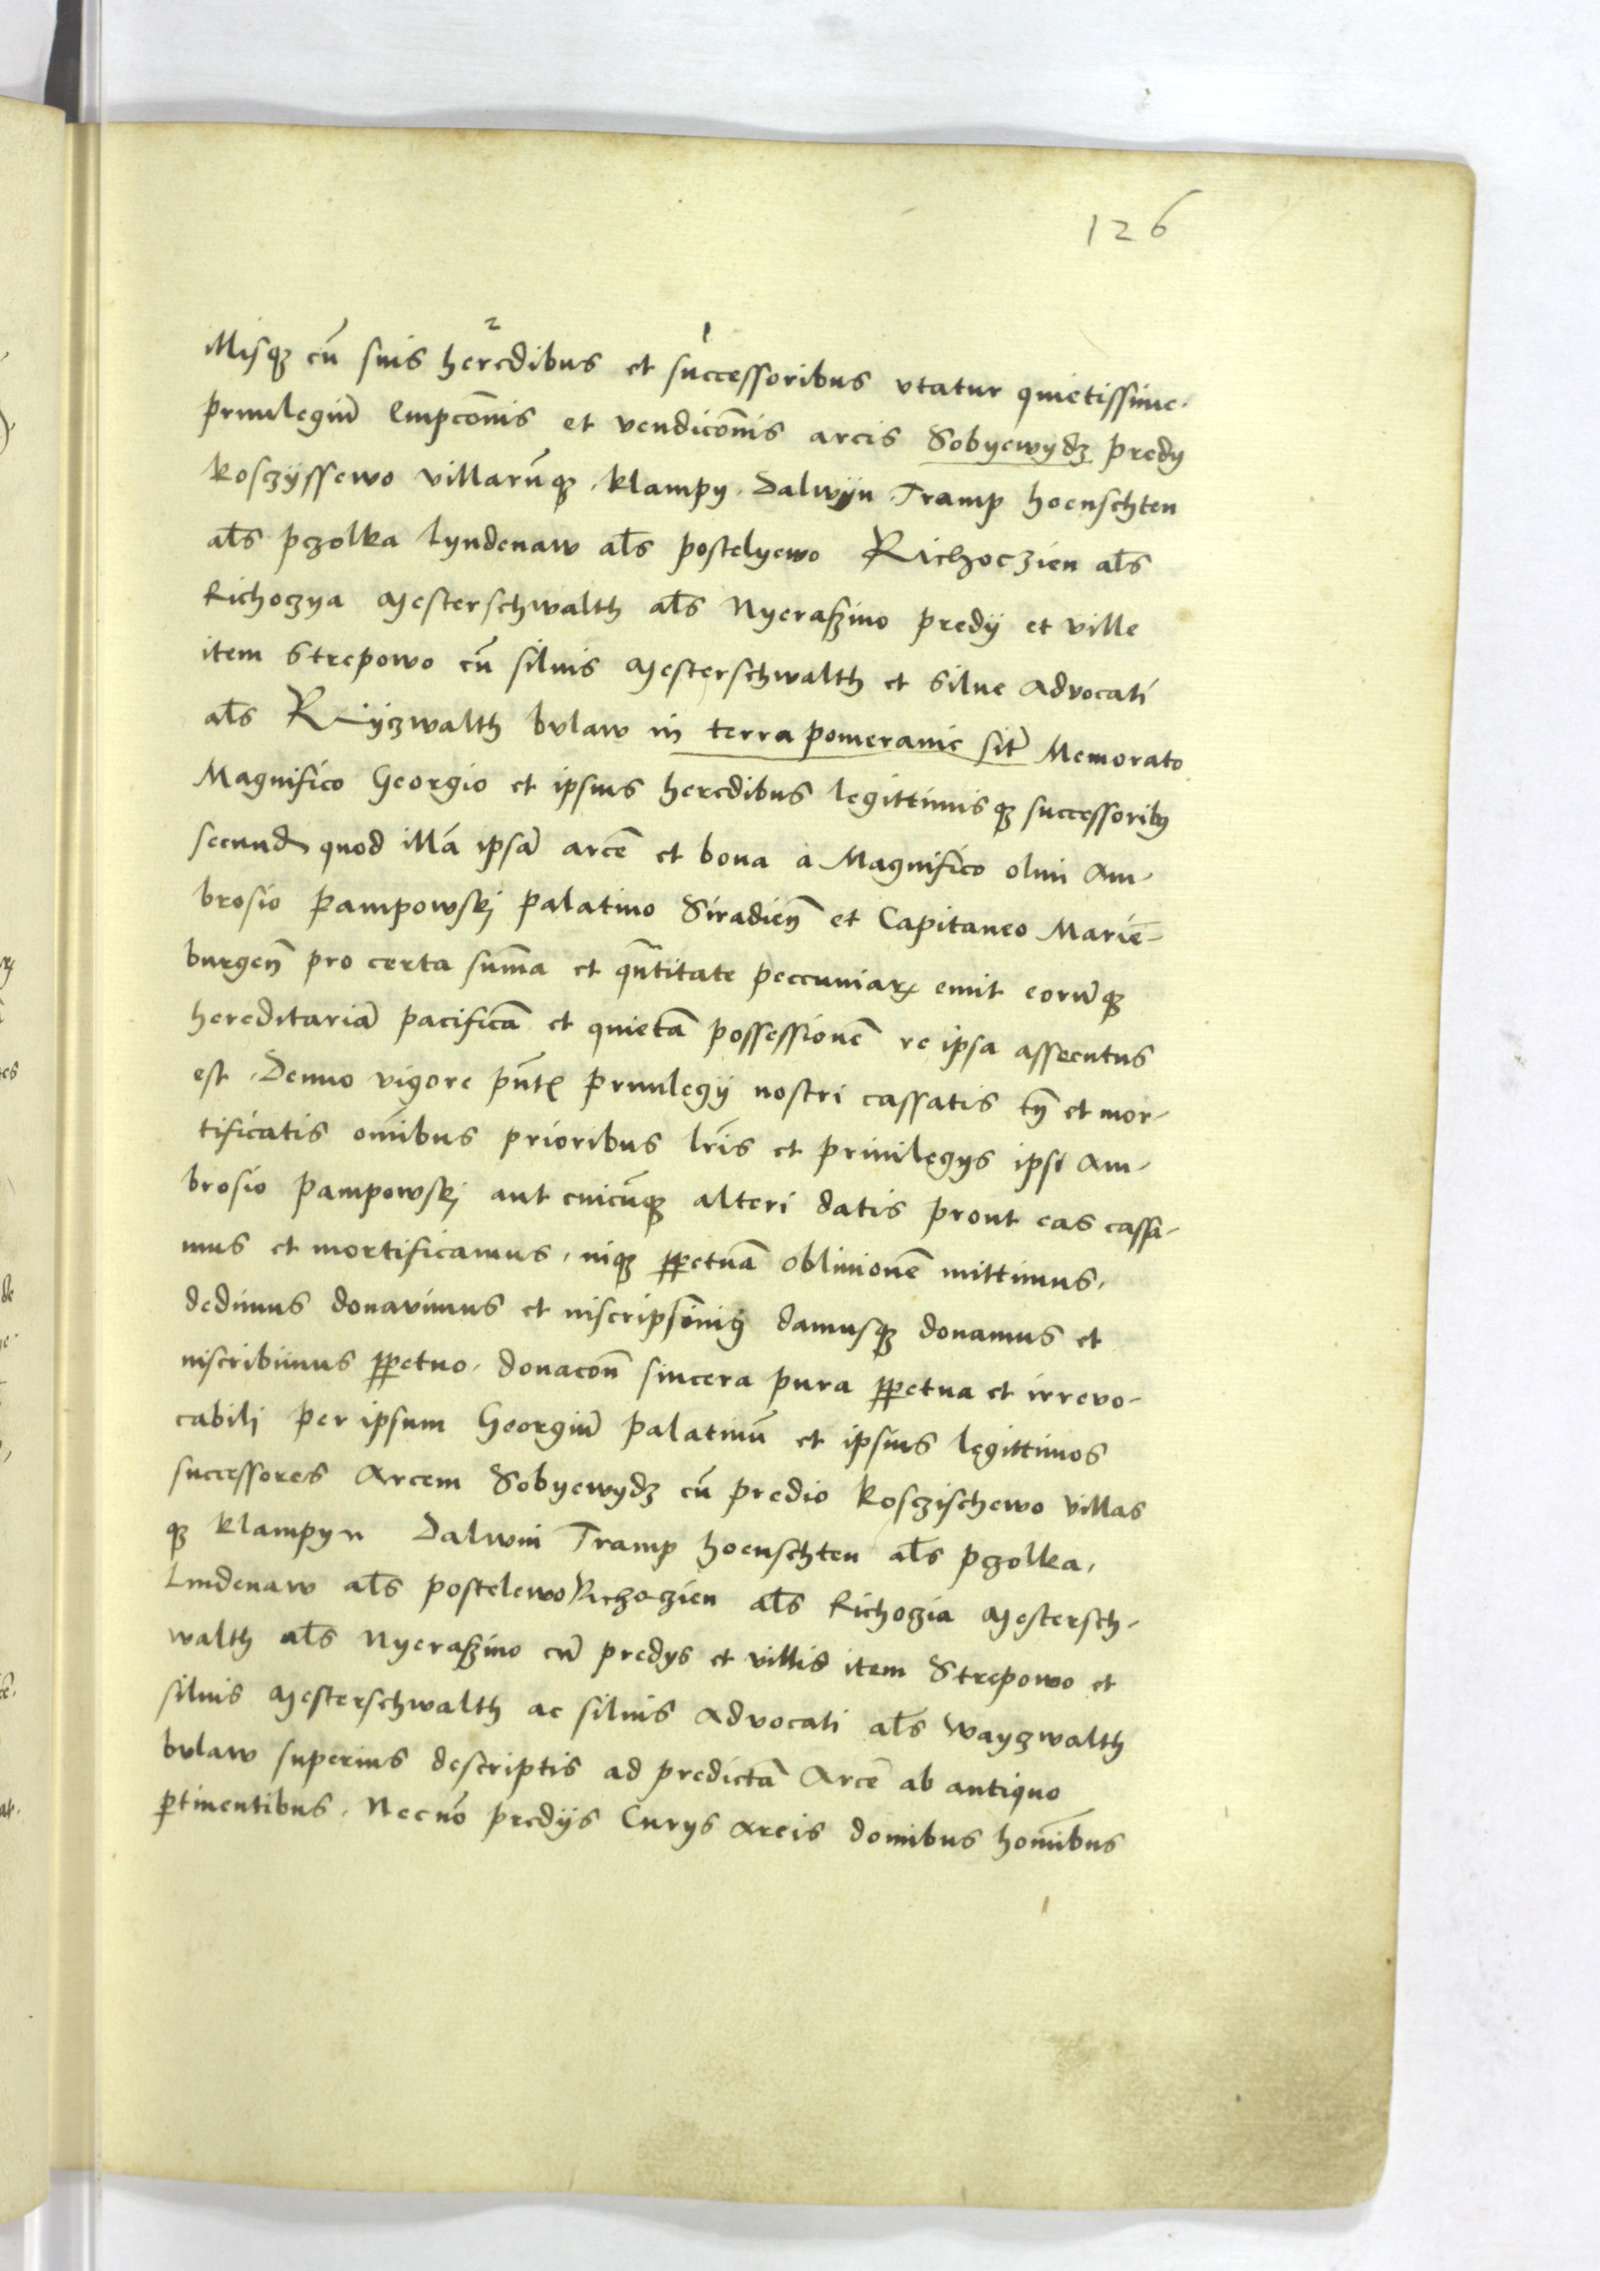 126
2 1
illisqȝ cū suis heredibus et successoribus vtatur quietissime.
priuilegiū Empcōnis et vendicōnis arcis Sobyewydz predy
kosczÿssewo villarūqȝ . klampy . Dalwÿn Tramp hoenschten
al̄s pczolka Lyndenaw al̄s postelyewo Richoczien al̄s
Richoczya Mesterschwalth al̄s Nyeraszino predÿ et ville
item Strepowo cū siluis Mesterschwalth et silue Advocati
al̄s Rÿczwalth bvlaw in terra pomeranie sit̄ Memorato
Magnifico Georgio et ipsius heredibus legittimisqȝ successoribꝰ
secund quod illā ipsā arcē et bona a Magnifico olim Am-
brosio Pampowskj palatino Siradieñ et Capitaneo Mariē-
burgeñ pro certa sum̄a et qn̄titate peccuniarꝝ emit eorūqȝ
hereditariā pacificā et quietā possessionē re ipsa assecutus
est . Denuo vigore pn̄tꝭ priuilegÿ nostri cassatis tn̄ et mor-
tificatis om̄ibus prioribus lr̄is et priuilegys ipsi Am-
brosio pampowskj aut cuicūqȝ alteri datis prout eas cassa-
mus et mortificamus . inqȝ ꝑpetuā obliuionē mittimus .
dedimus donavimus et inscripsimꝰ damusqȝ donamus et
inscribimus ꝑpetuo . donacōn̄ sincera pura ꝑpetua et irrevo-
cabilj per ipsum Georgiū palatinū et ipsius legittimos
successores Arcem Sobyewydz cū predio kosczischewo villas
qȝ klampyn Dalwin Tramp hoenschten al̄s pczolka .
Lindenaw al̄s postelewo Richoczien al̄s Richoczia Mestersch-
walth al̄s Nyeraszino cū predys et villis item Strepowo et
siluis Mesterschwalth ac siluis Advocati al̄s Wayczwalth
bvlaw superius descriptis ad predictā Arcē ab antiquo
ꝑtinentibus . Necnō predÿs Curys areis domibus hom̄ibus